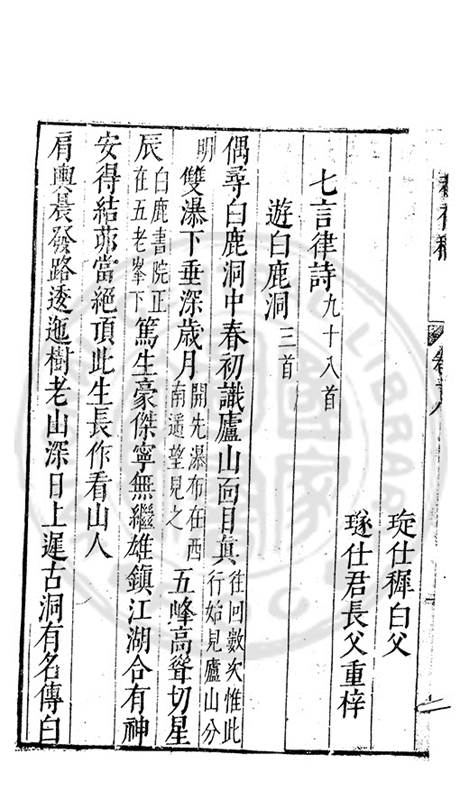 琁仕穉白父
璲仕君長父重梓
七言律詩九十八首
遊白鹿洞三首
偶尋白鹿洞中春初識廬山面目真往回數次惟此行始見廬山分
明雙瀑下垂深歲月開先瀑布在西南遥望見之五峰高聳切星
辰白鹿書院正在五老峯下篤生豪傑寧無繼雄鎮江湖合有神
安得結茆當絕頂此生長作看山人
肩輿晨發路逶迤樹老山深日上遲古洞有名傳白